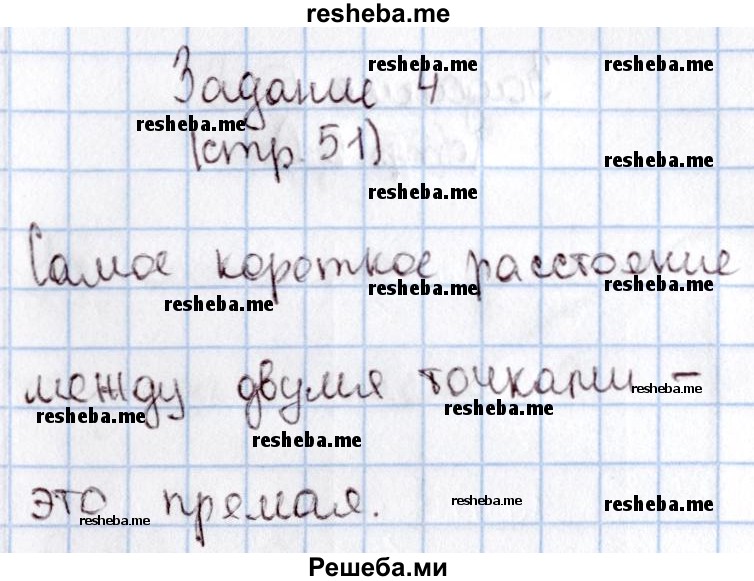 resheba.me
Задание 4
resheba.me resheba.me
resheba.me
(стр. 51)
resheba.me
resheba.me
Самое короткое расстояние
resheba.me resheba.me resheba.me
между двумя точками -
resheba.me resheba.me resheba.me
resheba.me
это прямая.
resheba.me resheba.me resheba.me
Решеба.ми